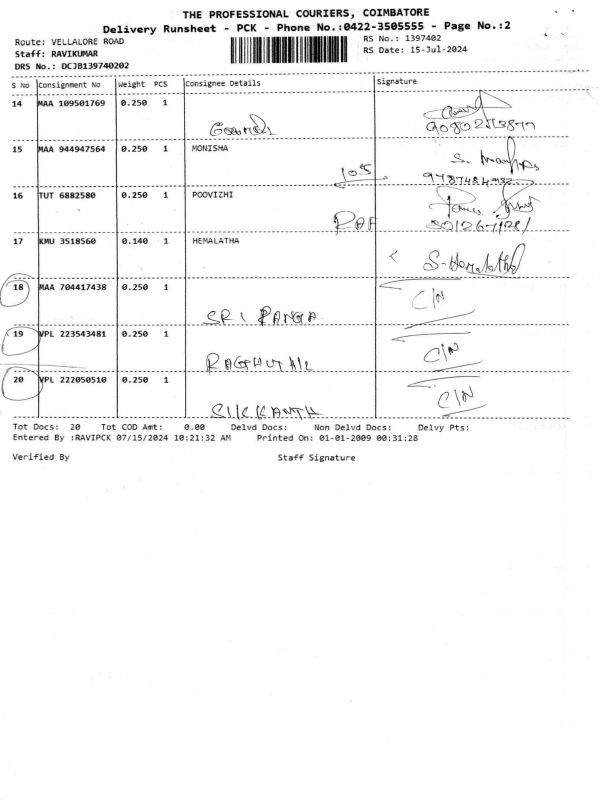 THE PROFESSIONAL COURIERS, COIMBATORE
Delivery Runsheet - PCK - Phone No.:0422-3505555 - Page No.:2
Route: VELLALORE ROAD
Staff: RAVIKUMAR
DRS No.: DCJB139740202
RS No.: 1397402
RS Date: 15-Jul-2024
S No Consignment No Weight PCS Consignee Details Signature
14 MAA 109501769 0.250 1
15 MAA 944947564 0.250 1 MONISHA
105
16 TUT 6882580 0.250 1 POOVIZHI
17 KMU 3518560 0.140 1 HEMALATHA
S-Hemalatha
18 MAA 704417438 0.250 1
SRI RANGA C/N
19 VPL 223543481 0.250 1
C/N
20 VPL 222050510 0.250 1
C/N
Tot Docs: 20 Tot COD Amt: 0.00 Delvd Docs: Non Delvd Docs: Delvy Pts:
Entered By :RAVIPCK 07/15/2024 10:21:32 AM Printed On: 01-01-2009 00:31:28
Verified By Staff Signature